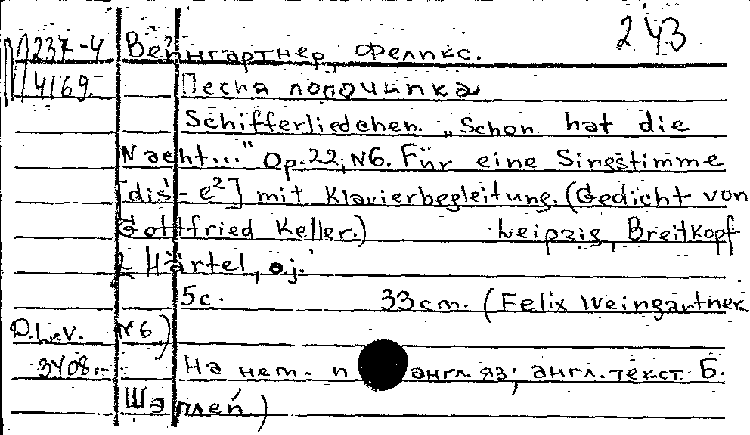 243
П237-4 Вейнгартнер, Феликс.
П4169 Песня лодочника
Schifferliedchen. „Schon hat die
Nacht..." Op.22, N6. Für eine Singstimme
[dis¹-e²] mit Klavierbegleitung. (Gedicht von
Gottfried Keller.) Leipzig, Breitkopf
& Härtel, o.j.
5c. 33cm. (Felix Weingartner
D.L.v. N6)
3408.- На нем. и англ. яз; англ. текст Б.
Шаплей)